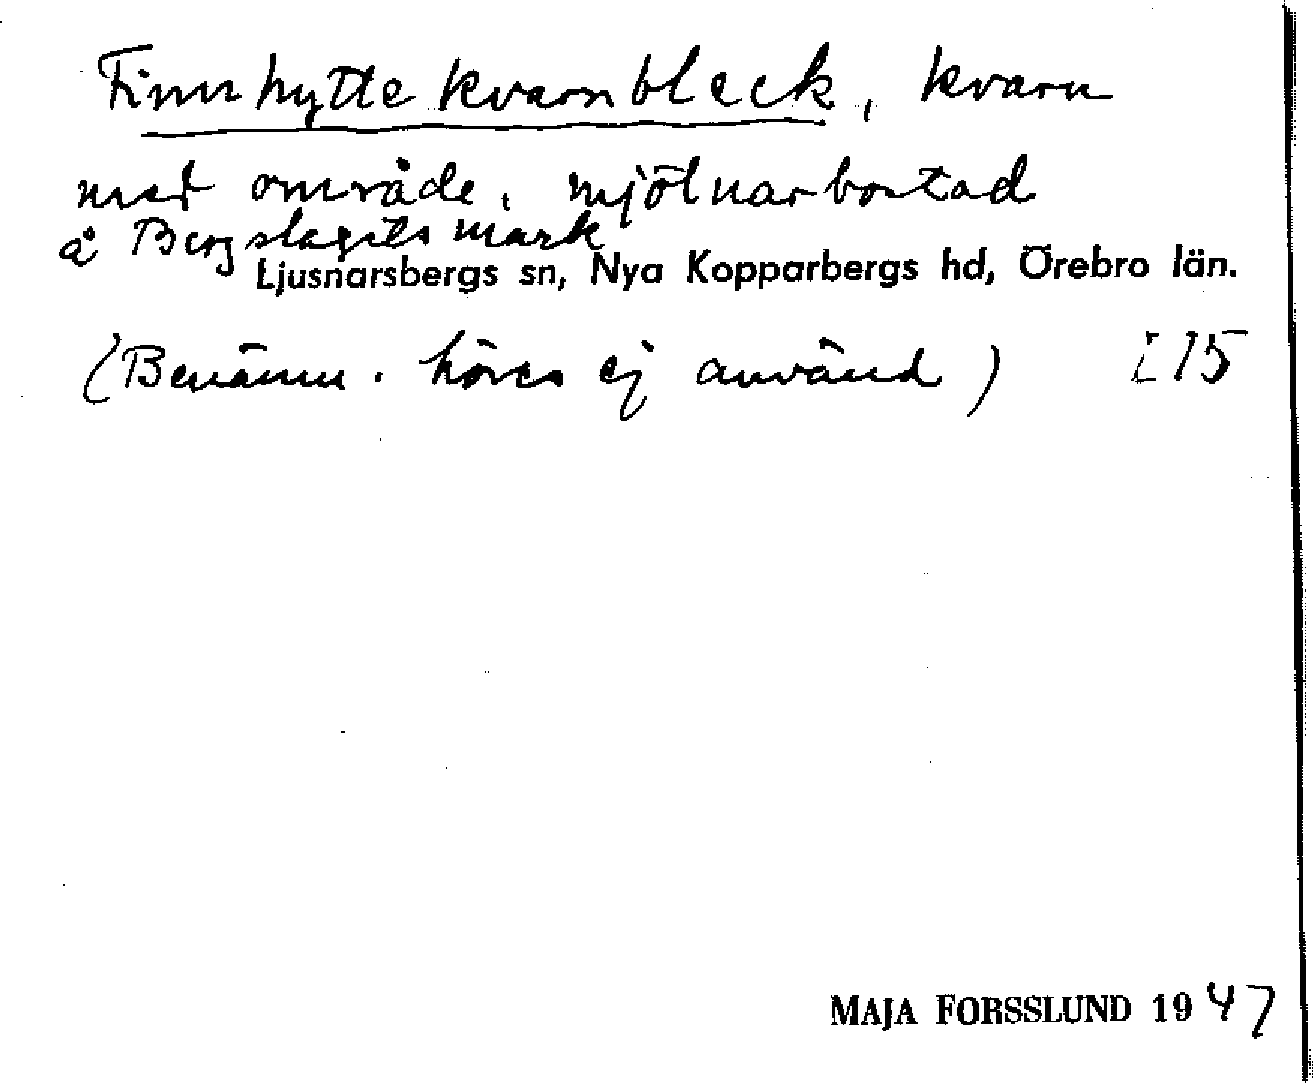 Finnhytte kvarnbleck, kvarn
med område, mjölnarbostad
å Bergslagets mark
Ljusnarsbergs sn, Nya Kopparbergs hd, Örebro län.
(Benämn. höres ej använd) I 15
MAJA FORSSLUND 1947